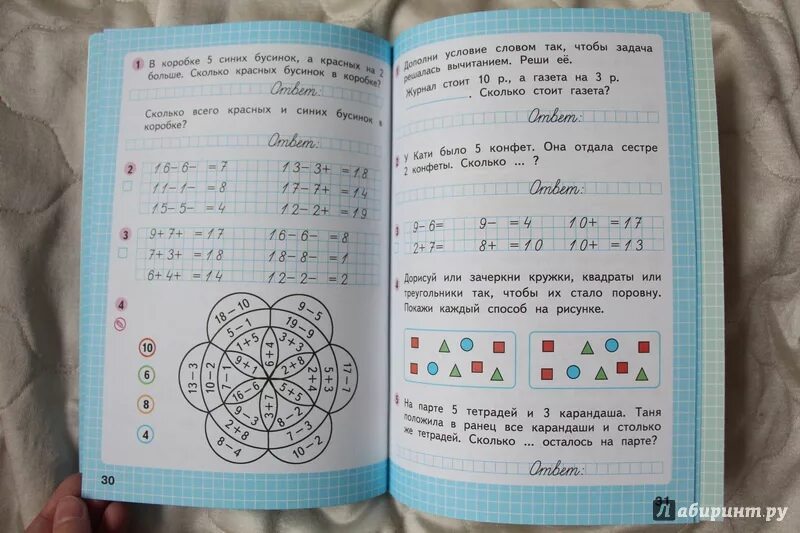 1 В коробке 5 синих бусинок, а красных на 2
больше. Сколько красных бусинок в коробке?
Ответ:
Сколько всего красных и синих бусинок в
коробке?
Ответ:
2 16-6- =7 13-3+ =18
11-1- =8 17-7+ =14
15-5- =4 12-2+ =19
3 9+7+ =17 16-6- =8
7+3+ =18 18-8- =1
6+4+ =14 12-2- =2
4
10
6
8
4
18-10 9-5
5-1 19-9
1+5 6+4 3+3
13-3 10-2 7-1 9+1 2+8 2+4 5+3 17-7
16-6 3+7 5+5
9-3 8-2
2+8 7-3
8-4 10-2
30
Дополни условие словом так, чтобы задача
решалась вычитанием. Реши её.
Журнал стоит 10 р., а газета на 3 р.
. Сколько стоит газета?
Ответ:
2 У Кати было 5 конфет. Она отдала сестре
2 конфеты. Сколько ... ?
Ответ:
3 9-6= 9- =4 10+ =17
2+7= 8+ =10 10+ =13
4 Дорисуй или зачеркни кружки, квадраты или
треугольники так, чтобы их стало поровну.
Покажи каждый способ на рисунке.
5 На парте 5 тетрадей и 3 карандаша. Таня
положила в ранец все карандаши и столько
же тетрадей. Сколько ... осталось на парте?
Ответ:
31
Лабиринт.ру